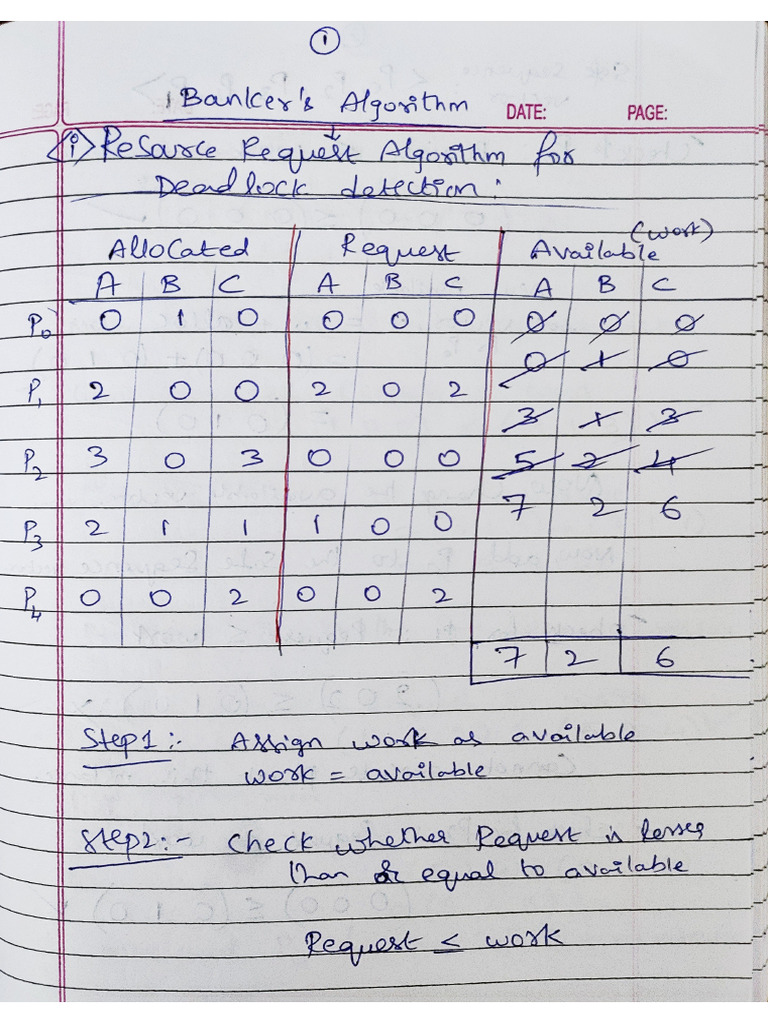 1
Banker's Algorithm DATE: PAGE:
<i> Resource Request Algorithm for
Deadlock detection:
Allocated Request Available (work)
A B C A B C A B C
P0 0 1 0 0 0 0 0 0 0
0 1 0
P1 2 0 0 2 0 2
3 1 3
P2 3 0 3 0 0 0 5 2 4
7 2 6
P3 2 1 1 1 0 0
P4 0 0 2 0 0 2
7 2 6
Step1:- Assign work as available
work = available
Step2:- Check whether Request is lesser
than or equal to available
Request ≤ work